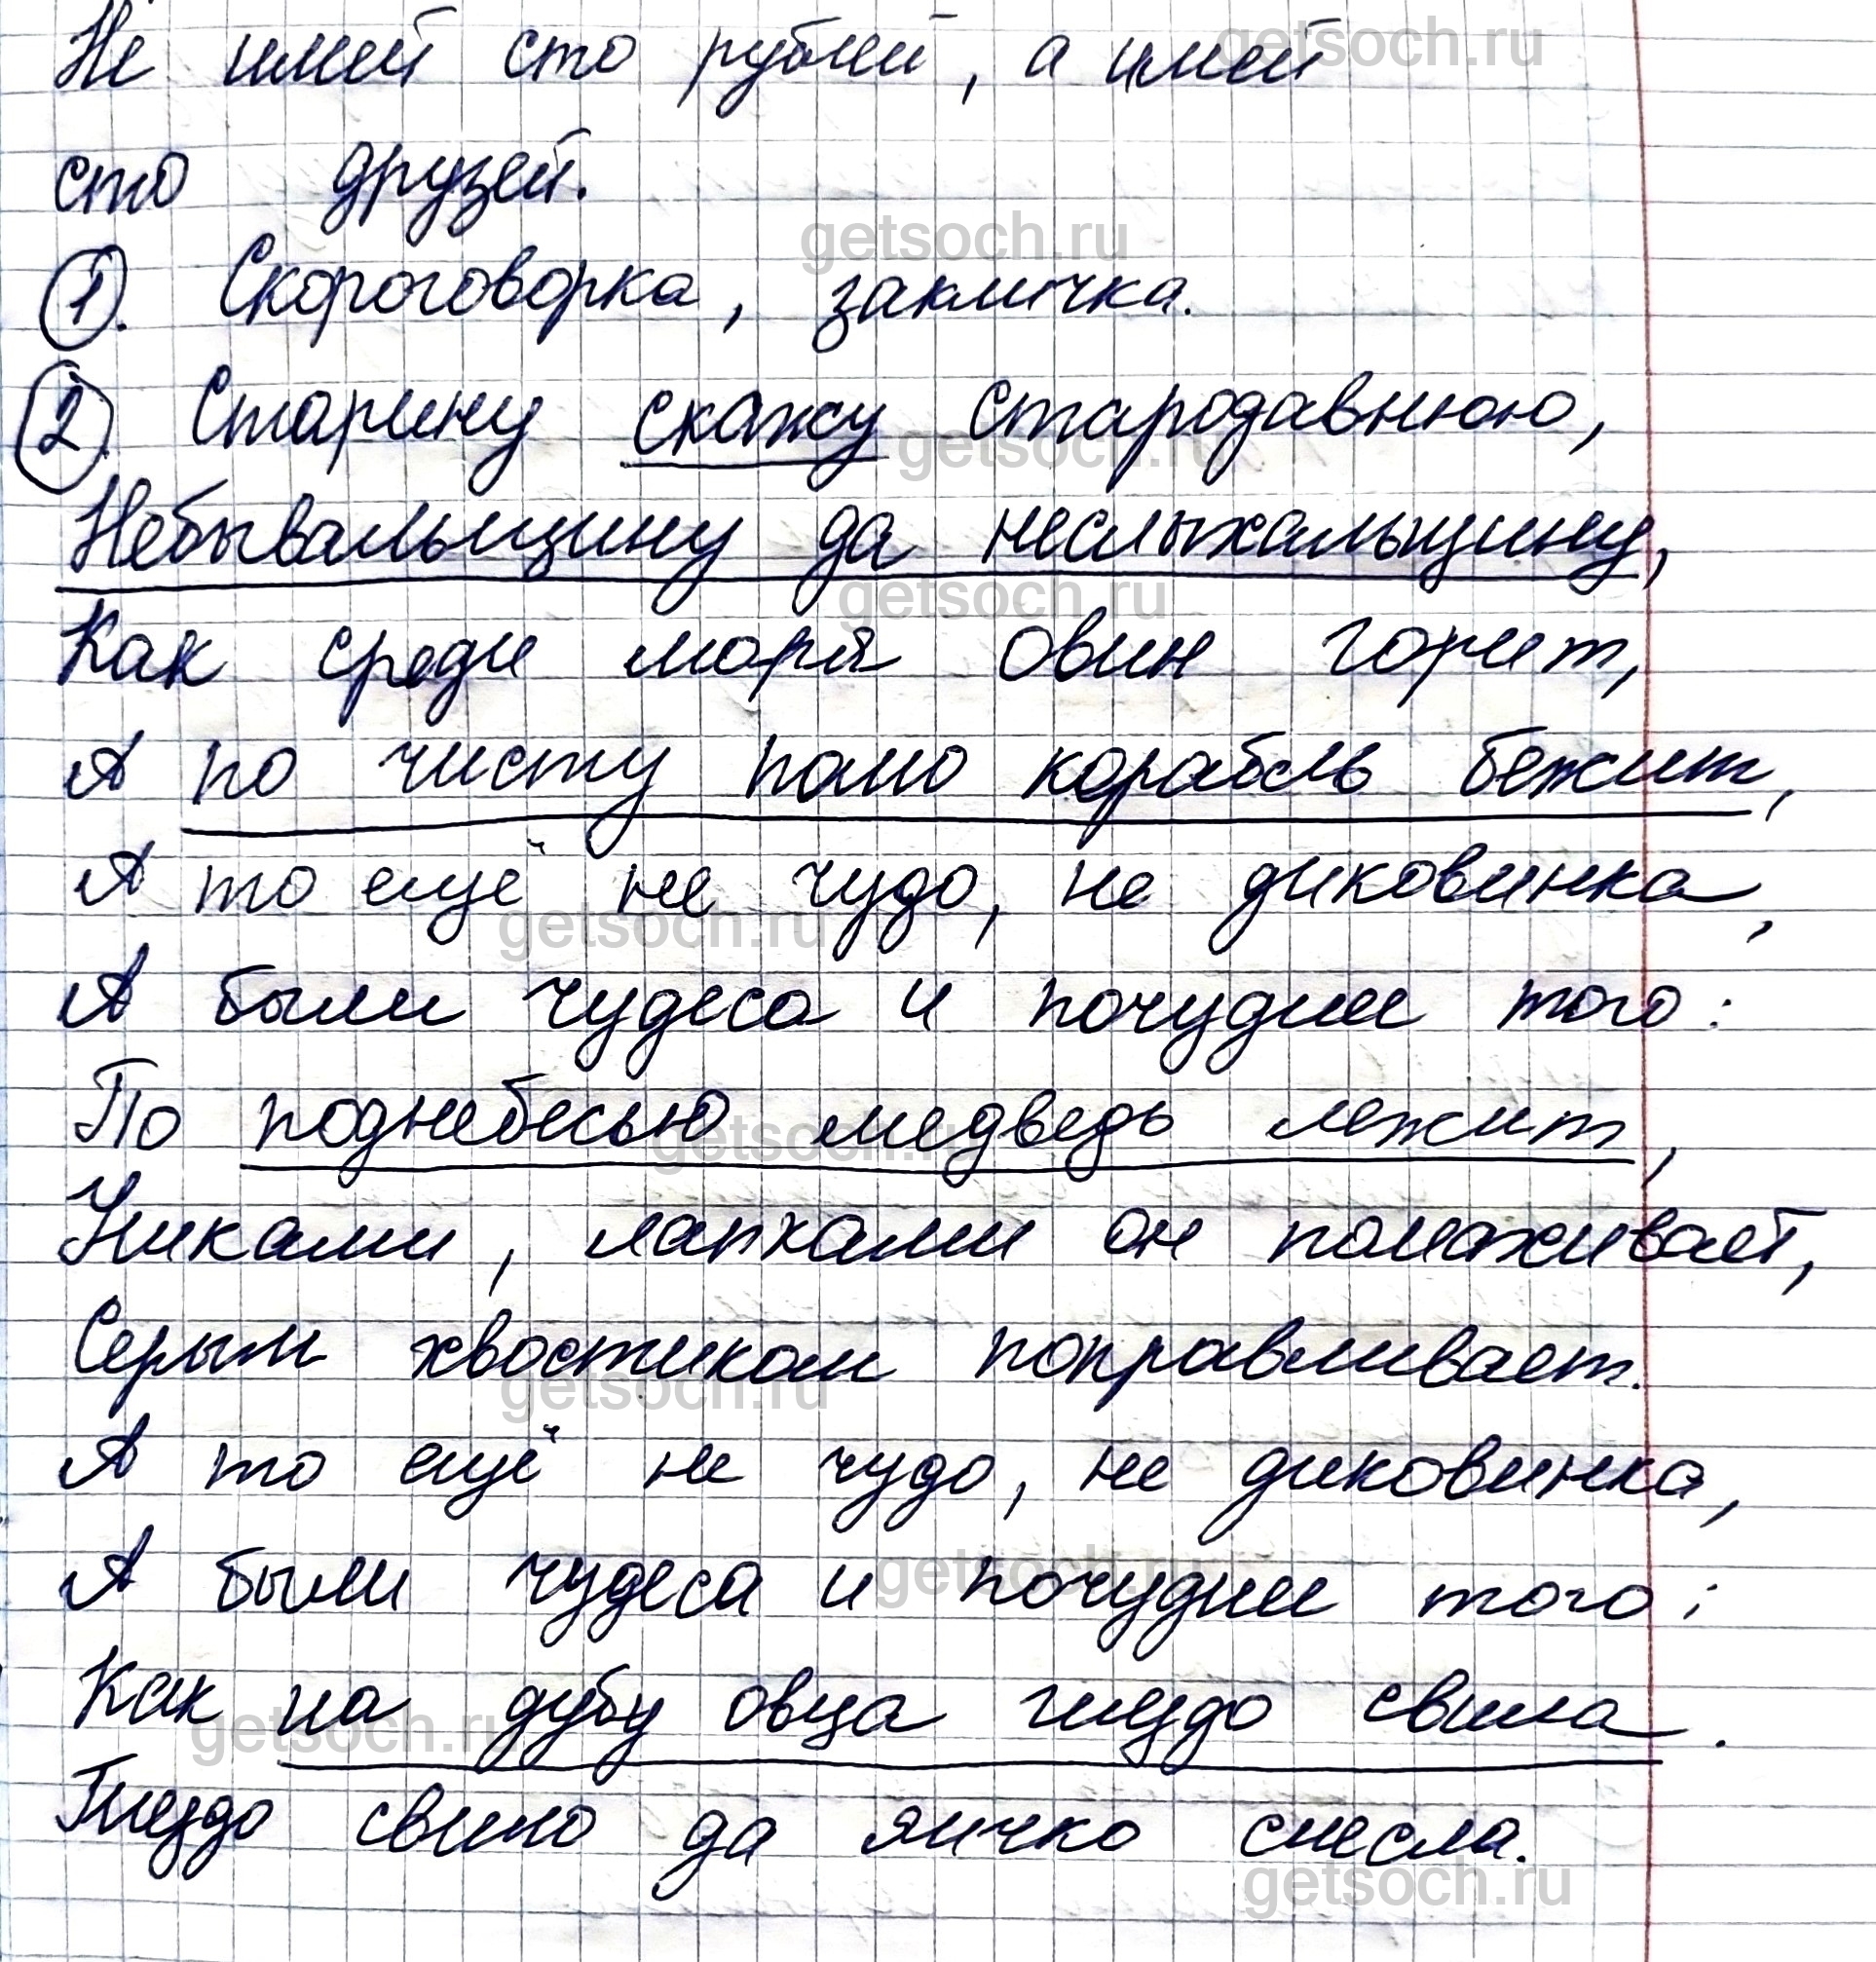 Не имей сто рублей, а имей
сто друзей.
1. Скороговорка, закличка.
2. Старину скажу стародавнюю,
Небывальщину да неслыхальщину,
Как среди моря овин горит,
А по чисту полю корабль бежит,
А то ещё не чудо, не диковинка,
А были чудеса и почуднее того:
По поднебесью медведь лежит,
Ушками, лапками он помаживает,
Серым хвостиком поправливает.
А то ещё не чудо, не диковинка,
А были чудеса и почуднее того:
Как на дубу овца гнездо свила.
Гнездо свило да яичко снесла.
getsoch.ru
getsoch.ru
getsoch.ru
getsoch.ru
getsoch.ru
getsoch.ru
getsoch.ru
getsoch.ru
getsoch.ru
getsoch.ru